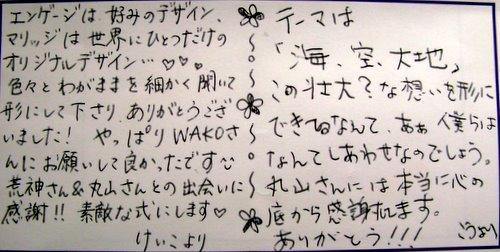 エンゲージは、好みのデザイン、
マリッジは世界にひとつだけの
オリジナルデザイン…♡♡♡
色々とわがままを細かく聞いて
形にして下さり、ありがとうござ
いました! やっぱりWAKOさ
んにお願いして良かったです
荒神さん&丸山さんとの出会いに
感謝!! 素敵な式にします♡
けいこより
テーマは
「海、空、大地」
この壮大?な想いを形に
できてるなんて、あぁ僕らは
なんてしあわせなのでしょう。
丸山さんには本当に心の
底から感謝れます。
ありがとう!!!